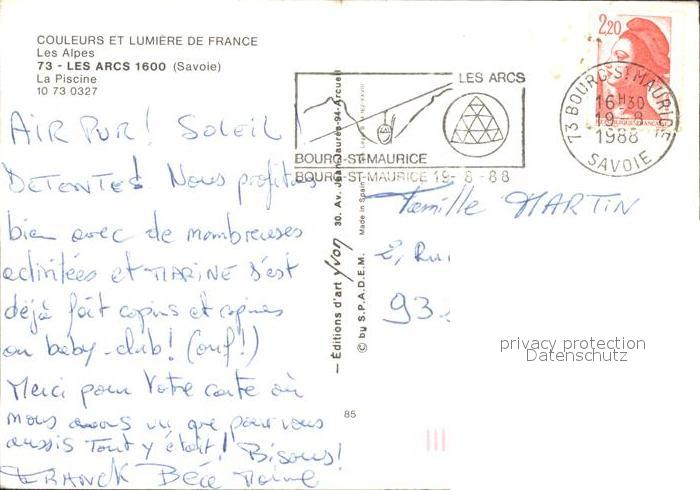 COULEURS ET LUMIÈRE DE FRANCE
Les Alpes
73 - LES ARCS 1600 (Savoie)
La Piscine
10 73 0327
AIR PUR! SOLEIL!
DETENTE! Nous profitons
bien avec de nombreuses
activitées et MARINE s'est
déjà fait copins et copines
au baby-club! (ouf!)
Merci pour Votre carte où
nous avons vu que pour vous
aussis Tout y était! Bisous!
FRANCK Marine
LES ARCS
BOURG-ST-MAURICE
BOURG-ST-MAURICE 19-8-88
2,20
73 BOURG-ST MAURICE
16H30
19-8
1988
SAVOIE
Famille MARTIN
2, Rue
93
— Éditions d'art Yvon 30. Av. Jean-Jaurès-94-Arcueil
© by S.P.A.D.E.M. Made in Spain
85
privacy protection
Datenschutz